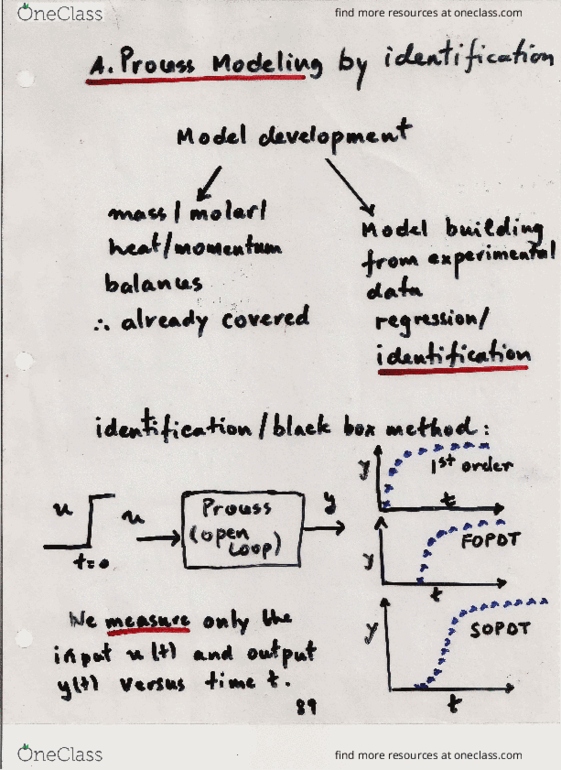 OneClass
find more resources at oneclass.com
A. Process Modeling by identification
Model development
mass / molar /
heat/momentum
balances
∴ already covered
Model building
from experimental
data
regression/
identification
identification / black box method:
u
t=0
u
Process
(open
Loop)
y
y
1st order
t
y
FOPDT
t
y
SOPDT
t
We measure only the
input u(t) and output
y(t) versus time t.
89
OneClass
find more resources at oneclass.com